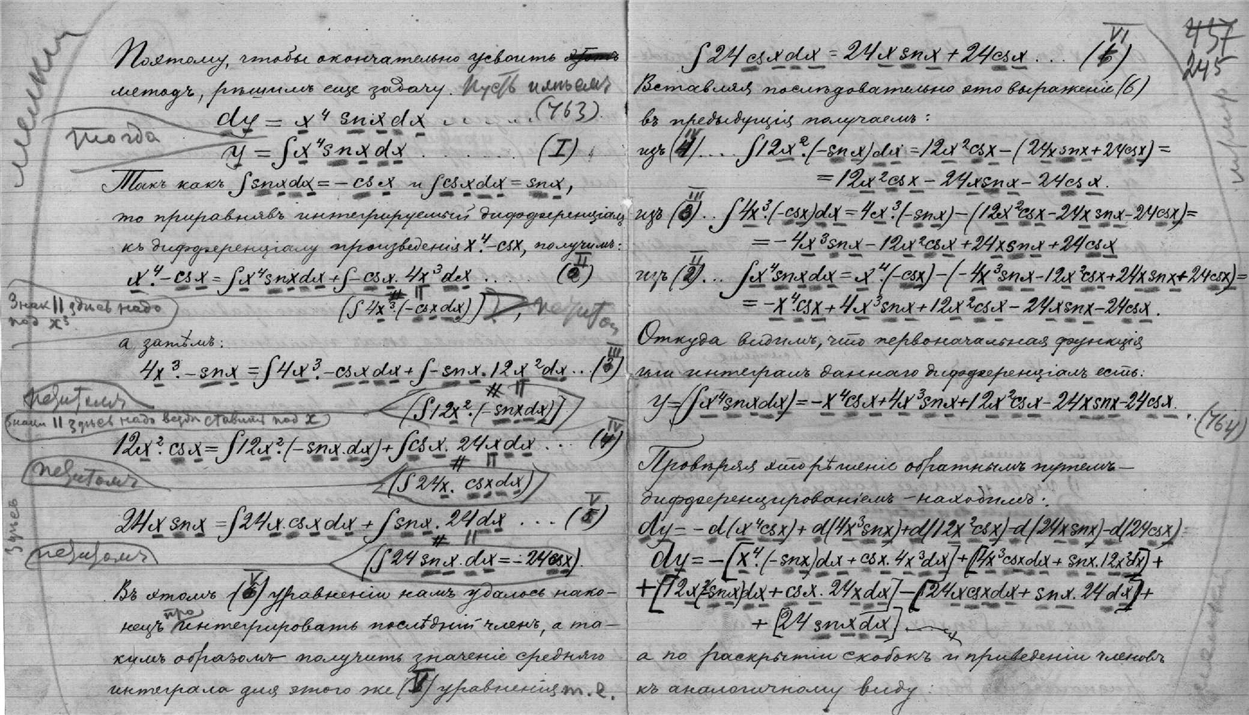 Поэтому, чтобы окончательно усвоить этотъ
методъ, рѣшимъ еще задачу. Пусть имѣемъ
dy = x⁴ snxdx ........ (763)
тогда
y = ∫x⁴snxdx ........ (I)
Такъ какъ ∫snxdx = -csx и ∫csxdx = snx,
то приравнявъ интегрируемый дифференціалъ
къ дифференціалу произведенія x⁴·-csx, получимъ:
x⁴·-csx = ∫x⁴snxdx + ∫-csx·4x³dx (II)
(∫4x³·(-csxdx))
Знак || здѣсь надо
под x³
петитом
а затѣмъ:
4x³·-snx = ∫4x³·-csxdx + ∫-snx·12x²dx... (III)
петитомъ
(∫12x²·(-snxdx))
знаки || здѣсь надо вездѣ ставить под x
12x²·csx = ∫12x²·(-snx·dx) + ∫csx·24xdx... (IV)
петитомъ
(∫24x·csxdx)
24xsnx = ∫24x·csxdx + ∫snx·24dx ... (V)
Здѣсь
петитомъ
(∫24snx·dx = -24csx)
Въ этомъ (V) уравненіи намъ удалось нако-
нецъ проинтегрировать послѣдній членъ, а та-
кимъ образомъ получить значеніе средняго
интеграла для этого же (V) уравненія т.е.
457
245
∫24csxdx = 24xsnx + 24csx ... (VI)
Вставляя послѣдовательно это выраженіе (6)
въ предыдущія получаемъ:
изъ (IV)... ∫12x²·(-snx)dx = 12x²csx - (24xsnx + 24csx) =
= 12x²csx - 24xsnx - 24csx.
изъ (III).. ∫4x³·(-csx)dx = 4x³·(-snx) - (12x²csx - 24xsnx - 24csx) =
= -4x³snx - 12x²csx + 24xsnx + 24csx
изъ (II)... ∫x⁴snxdx = x⁴(-csx) - (-4x³snx - 12x²csx + 24xsnx + 24csx) =
= -x⁴csx + 4x³snx + 12x²csx - 24xsnx - 24csx.
Откуда видимъ, что первоначальная функція
или интегралъ даннаго дифференціала есть:
y = (∫x⁴snxdx) = -x⁴csx + 4x³snx + 12x²csx - 24xsnx - 24csx.
(764)
Провѣряя это рѣшеніе обратнымъ путемъ —
дифференцированіемъ — находимъ:
dy = -d(x⁴csx) + d(4x³snx) + d(12x²csx) - d(24xsnx) - d(24csx)
dy = -[x⁴·(-snx)dx + csx·4x³dx] + [4x³csxdx + snx·12x²dx] +
+ [12x²(-snx)dx + csx·24xdx] - [24xcsxdx + snx·24dx] +
+ [24snxdx]
а по раскрытіи скобокъ и приведеніи членовъ
къ аналогичному виду: